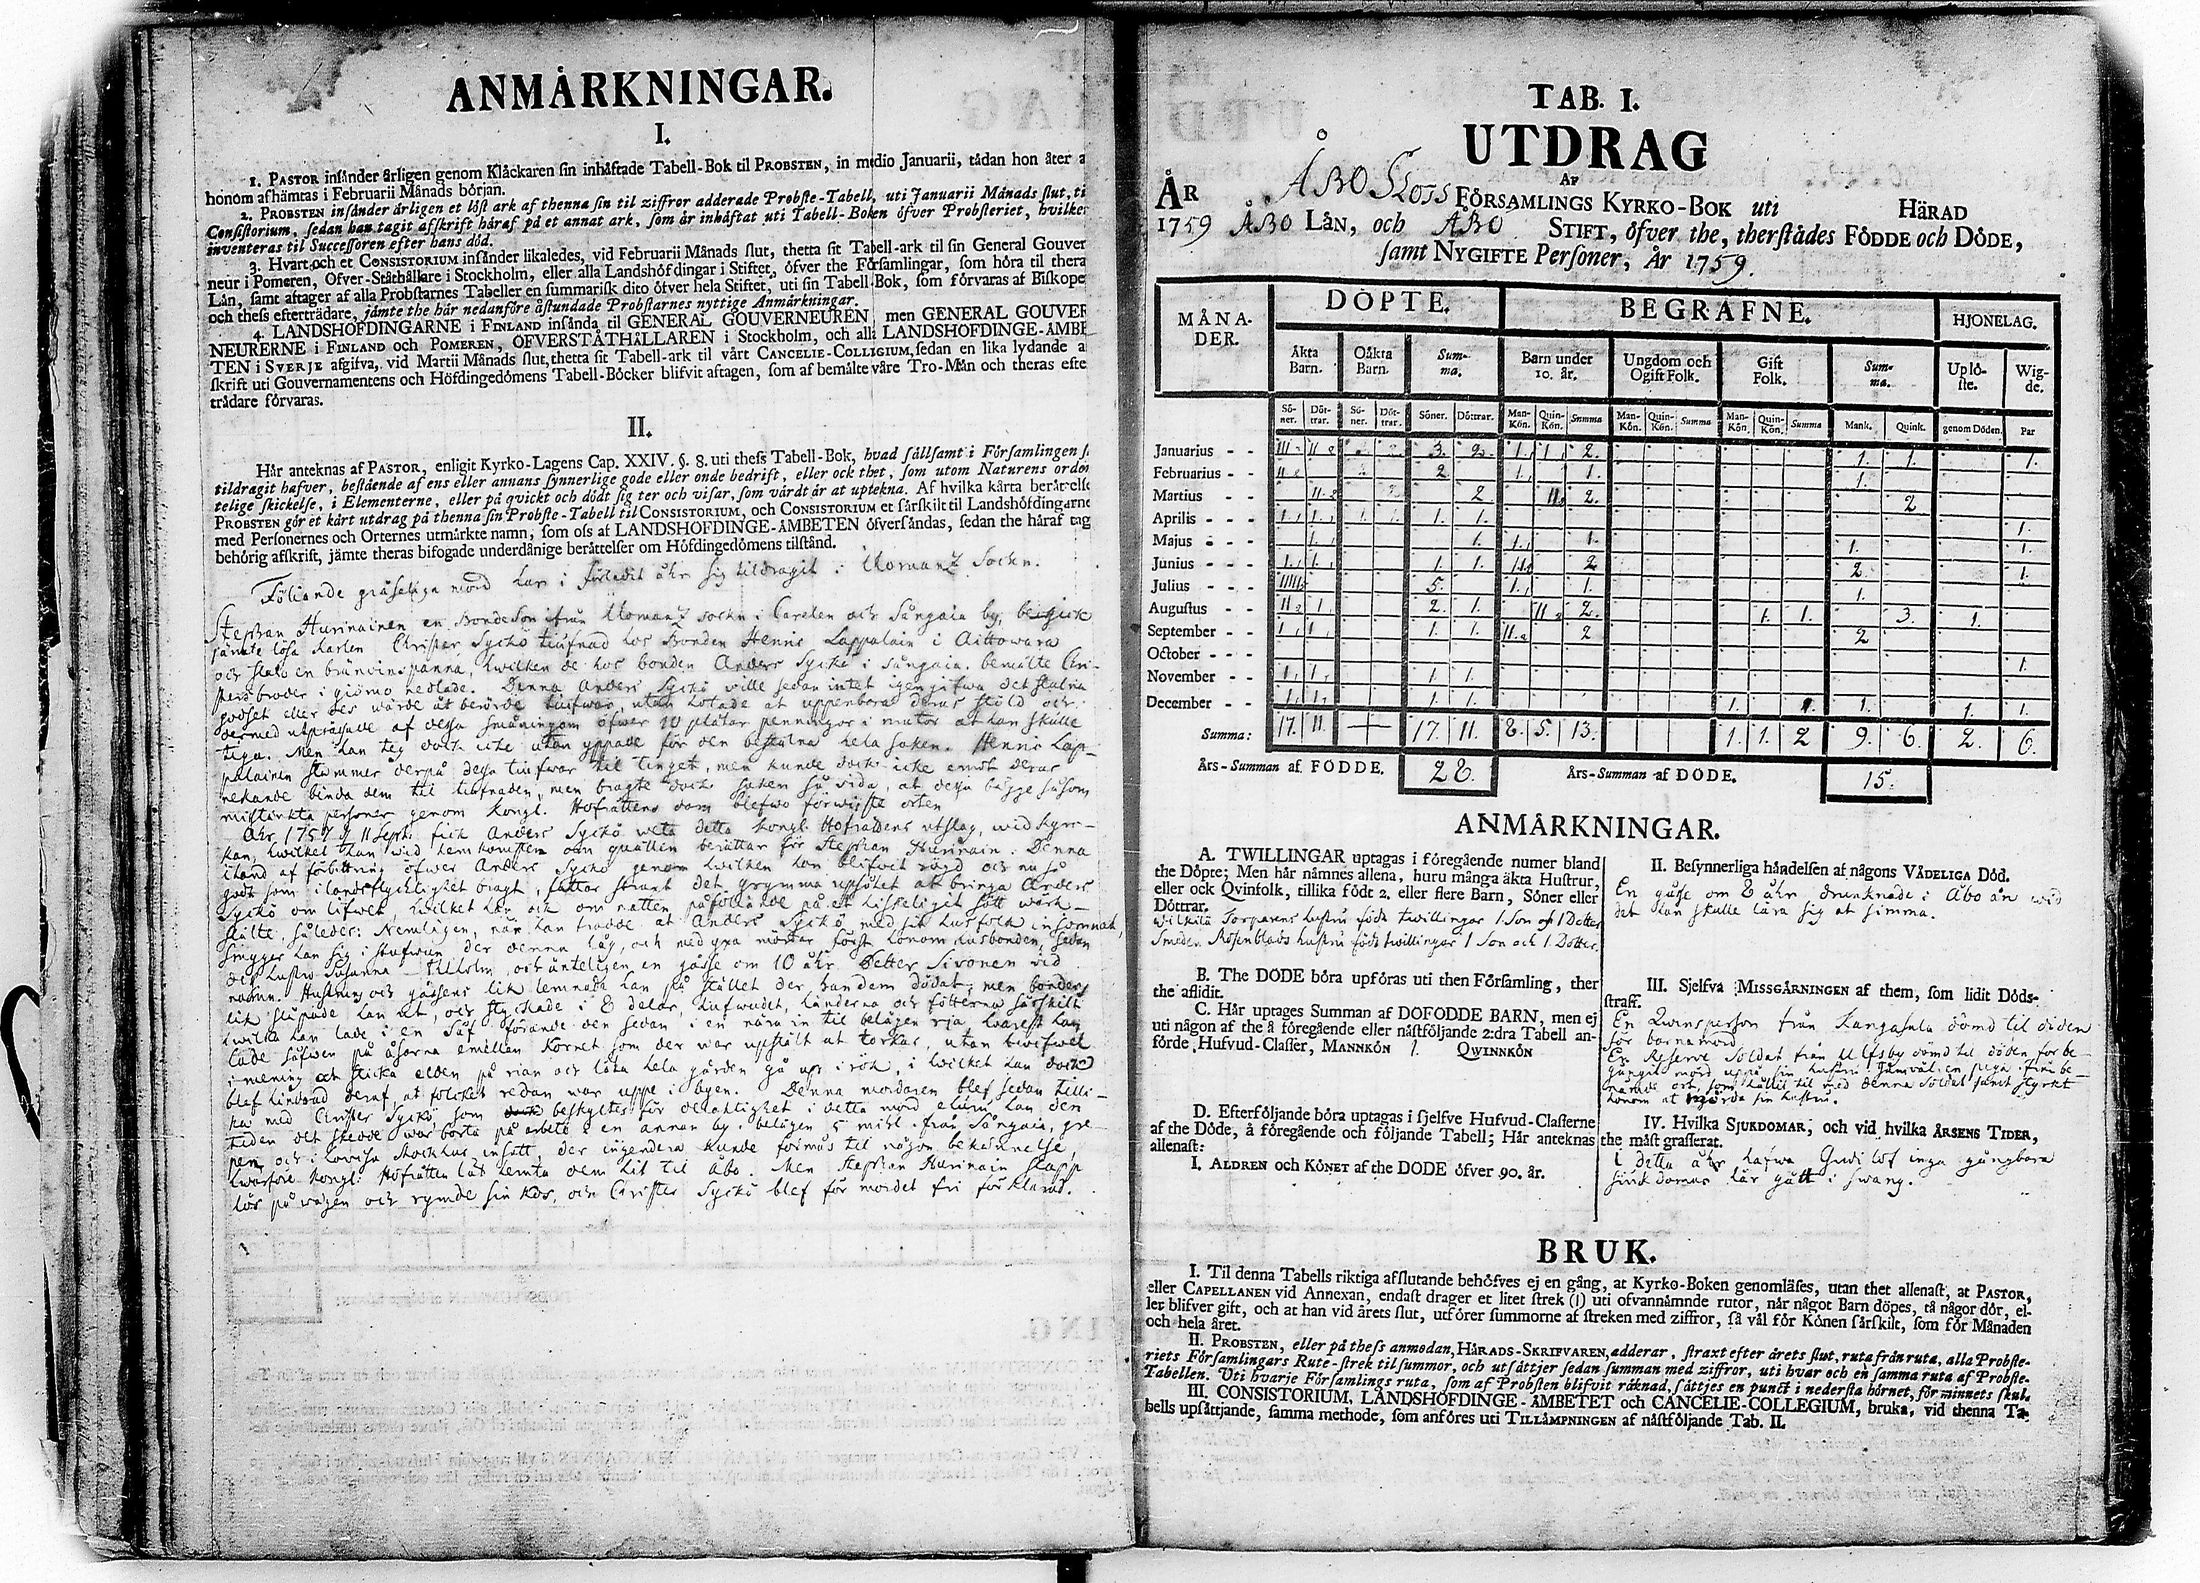 ANMÅRKNINGAR.
I.
1. PASTOR insånder årligen genom Klåckaren sin inhåftade Tabell-Bok til PROBSTEN, in medio Januarii, tådan hon åter a
honom afhämtas i Februarii Månads börjån.
2. PROBSTEN insånder årligen et löst ark af thenna sin til ziffror adderade Probste-Tabell, uti Januarii Månads slut, ti
Consistorium, sedan han tagit afskrift håraf på et annat ark, som år inhåftat uti Tabell-Boken öfver Probsteriet, hvilken
inventeras til Successoren efter hans död.
3. Hvart och et CONSISTORIUM insånder likaledes, vid Februarii Månads slut, thetta sit Tabell-ark til sin General Gouver
neur i Pomeren, Ofver-Ståthållare i Stockholm, eller alla Landshöfdingar i Stiftet, öfver the Församlingar, som höra til thera
Lån, samt aftager af alla Probstarnes Tabeller en summarisk dito öfver hela Stiftet, uti sin Tabell-Bok, som förvaras af Biskope
och thess efterträdare, jämte the hår nedanföre åstundade Probstarnes nyttige Anmärkningar.
4. LANDSHÖFDINGARNE i FINLAND insånda til GENERAL GOUVERNEUREN, men GENERAL GOUVER
NEURERNE i FINLAND och POMEREN, ÖFVERSTÅTHÅLLAREN i Stockholm, och alla LANDSHÖFDINGE-ÅMBE
TEN i SVERJE afgifva, vid Martii Månads slut, thetta sit Tabell-ark til vårt CANCELIE-COLLIGIUM, sedan en lika lydande a
skrift uti Gouvernamentens och Höfdingedömens Tabell-Böcker blifvit aftagen, som af bemålte våre Tro-Mån och theras efte
trädare förvaras.
II.
Hår anteknas af PASTOR, enligit Kyrko-Lagens Cap. XXIV. §. 8. uti thess Tabell-Bok, hvad sållsamt i Församlingen s
tildragit hafver, bestående af ens eller annans synnerlige gode eller onde bedrift, eller ock thet, som utom Naturens orden
telige skickelse, i Elementerne, eller på qvickt och dödt sig ter och visar, som värdt år at uptekna. Af hvilka kårta beråttelse
PROBSTEN gör et kårt utdrag på thenna sin Probste-Tabell til CONSISTORIUM, och CONSISTORIUM et särskilt til Landshöfdingarne
med Personernes och Orternes utmårkte namn, som oss af LANDSHÖFDINGE-ÅMBETEN öfversåndas, sedan the håraf tag
behörig afskrift, jämte theras bifogade underdånige beråttelser om Höfdingedömens tilstånd.
Föliande gräseliga mord har i förledit åhr sig tildragit i Uomanz Sockn.
Stephan Hurinainen en Bondeson ifrån Uomanz sockn i Carelen och Sångaia by, begick
jämte lösa Karlen Christer Syckö tiufnad hos Bonden Henric Lappalain i Aittowara
och stahl en bränvinspanna, hwilken de hos bonden Anders Syckö i Sångaia, bemälte Chri-
sters broder i giömo nedlade. Denna Anders Syckö wille sedan intet igengifwa det stulna
godset eller des wärde åt berörde tiufwar, utan hotade at uppenbara deras stöld och
dermed utprässade af dessa småningom öfwer 10 plåtar penningar i mutor at han skulle
tiga. Men han teg dock icke utan yppade för den bestulna hela saken. Henric Lap-
palainen stämmer derpå dessa tiufwar til tinget, men kunde dock icke emot deras
nekande binda dem til tiufnaden, men bragte dock saken så vida, at dessa bägge såsom
mistänkta personer genom Kongl. Hofrättens dom blefwo förwiste orten
Åhr 1757 d 11 Sept. fick Anders Syckö weta detta Kongl. Hofrättens utslag, wid kyrc-
kan, hwilket han wid hemkomsten om quällen berättar för Stephan Hurinain. Denna
itänd af förbittring öfwer Anders Syckö genom hwilken han blifwit röjd och nu så
godt som i landsflycktighet bragt, fattar strant det grymma upsåtet at bringa Anders
Syckö om lifwet, hwilket han ock om natten påföliande på et hiskeligit sätt wärk-
stälte, således: Nemligen, när han trodde at Anders Syckö med sit husfolk insomnat,
smyger han sig i stufwan der denna låg, och med yxa mördar först honom husbonden, sedan
des hustru Susanna och änteligen en gåsse om 10 åhr Petter Sivonen wid
namn. Hustruns och gåssens lik lemnade han på stället der han dem dödat, men bondens
lik släpade han ut, och styckade i 8 delar, hufwudet, händerna och fötterna särskilt
hwilka han lade i en säf förande den sedan i en nära in til belägen ria, hwarest han
lade säfwen på åsarna emellan Kornet som der war upstält at torkas, utan twifwel
i mening at sticka elden på rian och låta hela gården gå up i rök, i hwilket han dock
blef hindrad deraf, at folcket redan war uppe i byen. Denna mördaren blef sedan tilli-
ka med Christer Syckö som beskyltes för delaktighet i detta mord ehuru han den
tiden det skedde war borta på arbete i en annan by belägen 5 mihl från Sångaia, gre-
pen och i Lovisa Stockhus insatt, der ingendera kunde förmås til någon bekännelse,
hwarföre Kongl. Hofrätten låt hemta dem hit til Åbo. Men Stephan Hurinain slapp
lös på wägen och rymde sin kos, och Christer Syckö blef för mordet fri förklarad.
TAB. I.
UTDRAG
AF
ÅR
ÅBO Sloss FÖRSAMLINGS KYRKO-BOK uti HÄRAD
1759 ÅBO LÅN, och ÅBO STIFT, öfver the, therstådes FÖDDE och DÖDE,
samt NYGIFTE Personer, År 1759.
MÅNADER. DÖPTE. BEGRAFNE. HJONELAG.
Åkta Barn. Oåkta Barn. Summa. Barn under 10. år. Ungdom och Ogift Folk. Gift Folk. Summa. Uplöste. Wigde.
Söner. Döttrar. Söner. Döttrar. Söner. Döttrar. Man-Kön. Quin-Kön. Summa Man-Kön. Quin-Kön. Summa Man-Kön. Quin-Kön. Summa Mank. Quink. genom Döden. Par
Januarius - - III 3 II 2 3. 2. 1. 1. 2. 1. 1. 1.
Februarius - - II 2 2. 1. 1. 1.
Martius - - II. 2 2 II 2. 2
Aprilis - - - 1. 1. 1. 1. 1.
Majus - - - 1. 1. 1. 1. 1. 1.
Junius - - - 1. 1. 1. 1. II 2 2. 1.
Julius - - - IIIII 5. 1. 1. 1.
Augustus - - II 2 1. 2. 1. II 2 2. 1. 1. 3. 1.
September - - 1. 1. 1. 1. II. 2 2 2
October - - - 1.
November - - 1. 1. 1. 1.
December - - 1. 1. 1. 1. 1. 1. 1. 1. 1.
Summa: 17. 11. 17. 11. 8. 5. 13. 1. 1. 2 9. 6. 2. 6.
Års-Summan af FÖDDE. 28. Års-Summan af DÖDE. 15.
ANMÅRKNINGAR.
A. TWILLINGAR uptagas i föregående numer bland
the Döpte; Men hår nåmnes allena, huru många äkta Hustrur,
eller ock Qvinfolk, tillika födt 2. eller flere Barn, Söner eller
Döttrar.
Wilkilä Torparens hustru födt twillingar 1 Son och 1 Dotter
Smeden Rosenblads hustru födt twillingar 1 Son och 1 Dotter.
B. The DÖDE böra upföras uti then Församling, ther
the aflidit.
C. Hår uptages Summan af DÖDFÖDDE BARN, men ej
uti någon af the å föregående eller nåstföljande 2:dra Tabell an-
förde Hufvud-Classer, MANNKÖN 1. QWINNKÖN
D. Efterföljande böra uptagas i sjelfve Hufvud-Classerne
af the Döde, å föregående och följande Tabell; Hår anteknas
allenast:
I. ÅLDREN och KÖNET af the DÖDE öfver 90. år.
II. Besynnerliga håndelsen af någons VÅDELIGA Död.
En gåsse om 8 åhr drunknade i Åbo ån wid
det han skulle lära sig at simma.
III. Sjelfva MISSGÄRNINGEN af them, som lidit Döds-
straff.
En Qwinsperson från Kangasala dömd til döden
för barnamord
En Reserve Soldat från Ulfsby dömd til döden för be-
gångit mord uppå sin hustru. Jämväl en piga ifrån be-
nämde ort, som hållit til med denna Soldat samt styrkt
honom at mörda sin hustru.
IV. Hvilka SJUKDOMAR, och vid hvilka ÅRSENS TIDER,
the måst grasserat.
I detta åhr hafwa Gudi lof inga gångbara
siuckdomar här gått i swang.
BRUK.
I. Til denna Tabells riktiga afslutande behöfves ej en gång, at Kyrko-Boken genomläses, utan thet allenast, at PASTOR,
eller CAPELLANEN vid Annexan, endast drager et litet strek (|) uti ofvannåmnde rutor, når något Barn döpes, tå någor dör, el-
ler blifver gift, och at han vid årets slut, utförer summorne af streken med ziffror, så vål för Könen sårskilt, som för Månaden
och hela året.
II. PROBSTEN, eller på thess anmodan, HÄRADS-SKRIFVAREN, adderar, straxt efter årets slut, ruta från ruta, alla Probste-
riets Församlingars Rute-strek til summor, och utsåttjer sedan summan med ziffror, uti hvar och en samma ruta af Probste-
Tabellen. Uti hvarje Församlings ruta, som af Probsten blifvit råknad, såttjes en punct i nedersta hörnet, för minnets skul.
III. CONSISTORIUM, LANDSHÖFDINGE-ÅMBETET och CANCELIE-COLLEGIUM, bruka, vid thenna Ta-
bells upsåttjande, samma methode, som anföres uti TILLÅMPNINGEN af nåstföljande Tab. II.